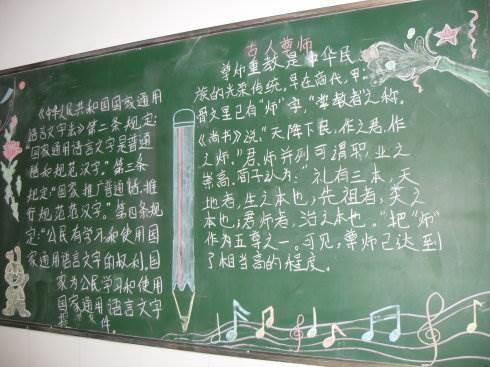 《中华人民共和国国家通用
语言文字法》第二条规定:
"国家通用语言文字是普通
话和规范汉字。"第三条
规定"国家推广普通话,推
行规范汉字。"第四条规
定:"公民有学习和使用国
家通用语言文字的权利。国
家为公民学习和使用
国家通用语言文字
条件。
古人尊师
尊师重教是中华民
族的光荣传统。早在商代,甲
骨文里已有"师"字,"掌教者"之称。
《尚书》说:"天降下民,作之君,作
之师。"君、师并列可谓职业之
崇高。荀子认为:"礼有三本,天
地者,生之本也,先祖者,类之
本也,君师者,治之本也。"把"师"
作为五尊之一。可见,尊师已达到
了相当高的程度。